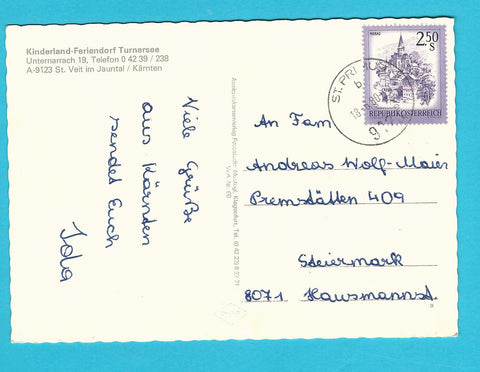 Kinderland-Feriendorf Turnersee
Unternarrach 19, Telefon 0 42 39 / 238
A-9123 St. Veit im Jauntal / Kärnten
Viele Grüße
aus Kärnten
sendet Euch
Ida
2.50
S
REPUBLIK ÖSTERREICH
ST. PRIMUS
An Fam
Andreas Wolf-Maier
Premstätten 409
Steiermark
8071 Hausmannst.